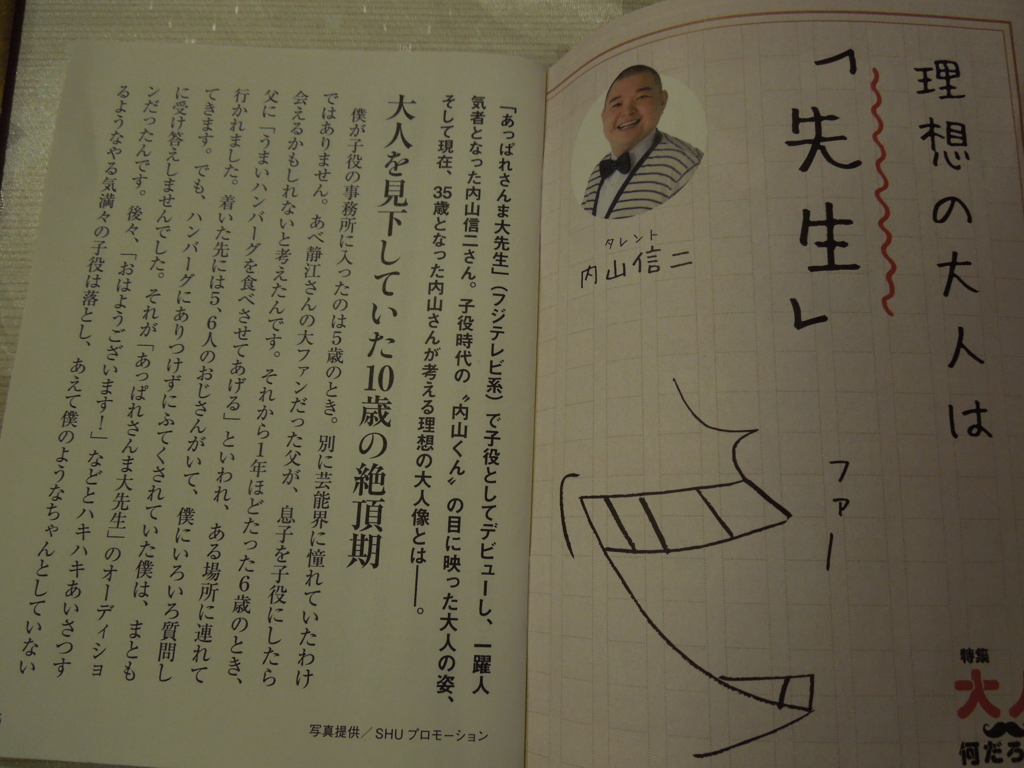 理想の大人は
「先生」
タレント
内山信二
ファー
特集
大人
何だろ
「あっぱれさんま大先生」（フジテレビ系）で子役としてデビューし、一躍人
気者となった内山信二さん。子役時代の〝内山くん〟の目に映った大人の姿、
そして現在、35歳となった内山さんが考える理想の大人像とは――。
大人を見下していた10歳の絶頂期
僕が子役の事務所に入ったのは5歳のとき。別に芸能界に憧れていたわけ
ではありません。あべ静江さんの大ファンだった父が、息子を子役にしたら
会えるかもしれないと考えたんです。それから1年ほどたった6歳のとき、
父に「うまいハンバーグを食べさせてあげる」といわれ、ある場所に連れて
行かれました。着いた先には5、6人のおじさんがいて、僕にいろいろ質問し
てきます。でも、ハンバーグにありつけずにふてくされていた僕は、まとも
に受け答えしませんでした。それが「あっぱれさんま大先生」のオーディショ
ンだったんです。後々、「おはようございます！」などとハキハキあいさつす
るようなやる気満々の子役は落とし、あえて僕のようなちゃんとしていない
写真提供／SHUプロモーション